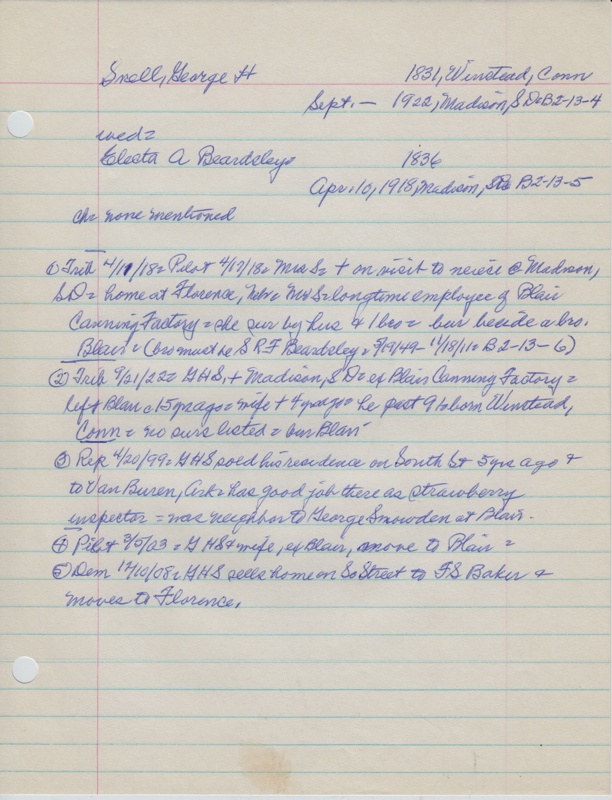 Snell, George H 1831, Winstead, Conn
Sept. — 1922, Madison, SD=B2-13-4
wed=
Electa A Beardsley= 1836
Apr. 10, 1918, Madison, SD= B2-13-5
ch= none mentioned
① Trib 4/11/18= Pilot 4/17/18= Mrs S= + on visit to neiese @ Madison,
SD= home at Florence, Nebr= Mr S= longtime employee of Blair
Canning Factory= she sur by hus & 1 bro= bur beside a bro.
Blair= (bro must be S R F Beardsley, 5/19/49- 11/18/11= B2-13-6)
② Trib 9/21/22= GHS, + Madison, SD= ex Blair Canning Factory=
left Blair c 15 yrs ago= wife + 4 yrs ago= he past 91= born Winstead,
Conn= no surs listed= bur Blair
③ Rep 4/20/99= GHS sold his residence on South St 5 yrs ago &
to Van Buren, Ark= has good job there as strawberry
inspector= was neighbor to George Smowden at Blair.
④ Pilot 3/5/03= GHS & wife, ex Blair, move to Blair=
⑤ Dem 12/10/08= GHS sells home on So Street to FS Baker &
moves to Florence.